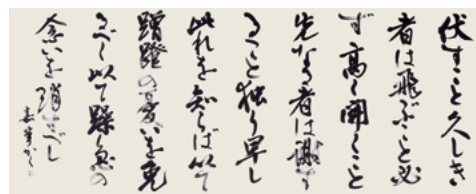 伏すこと久しき
者は飛ぶこと必
ず高く開くこと
先なる者は謝す
ること独り早し
此れを知らば以て
蹭蹬の憂いを免
るべく以て躁急の
念いを消すべし